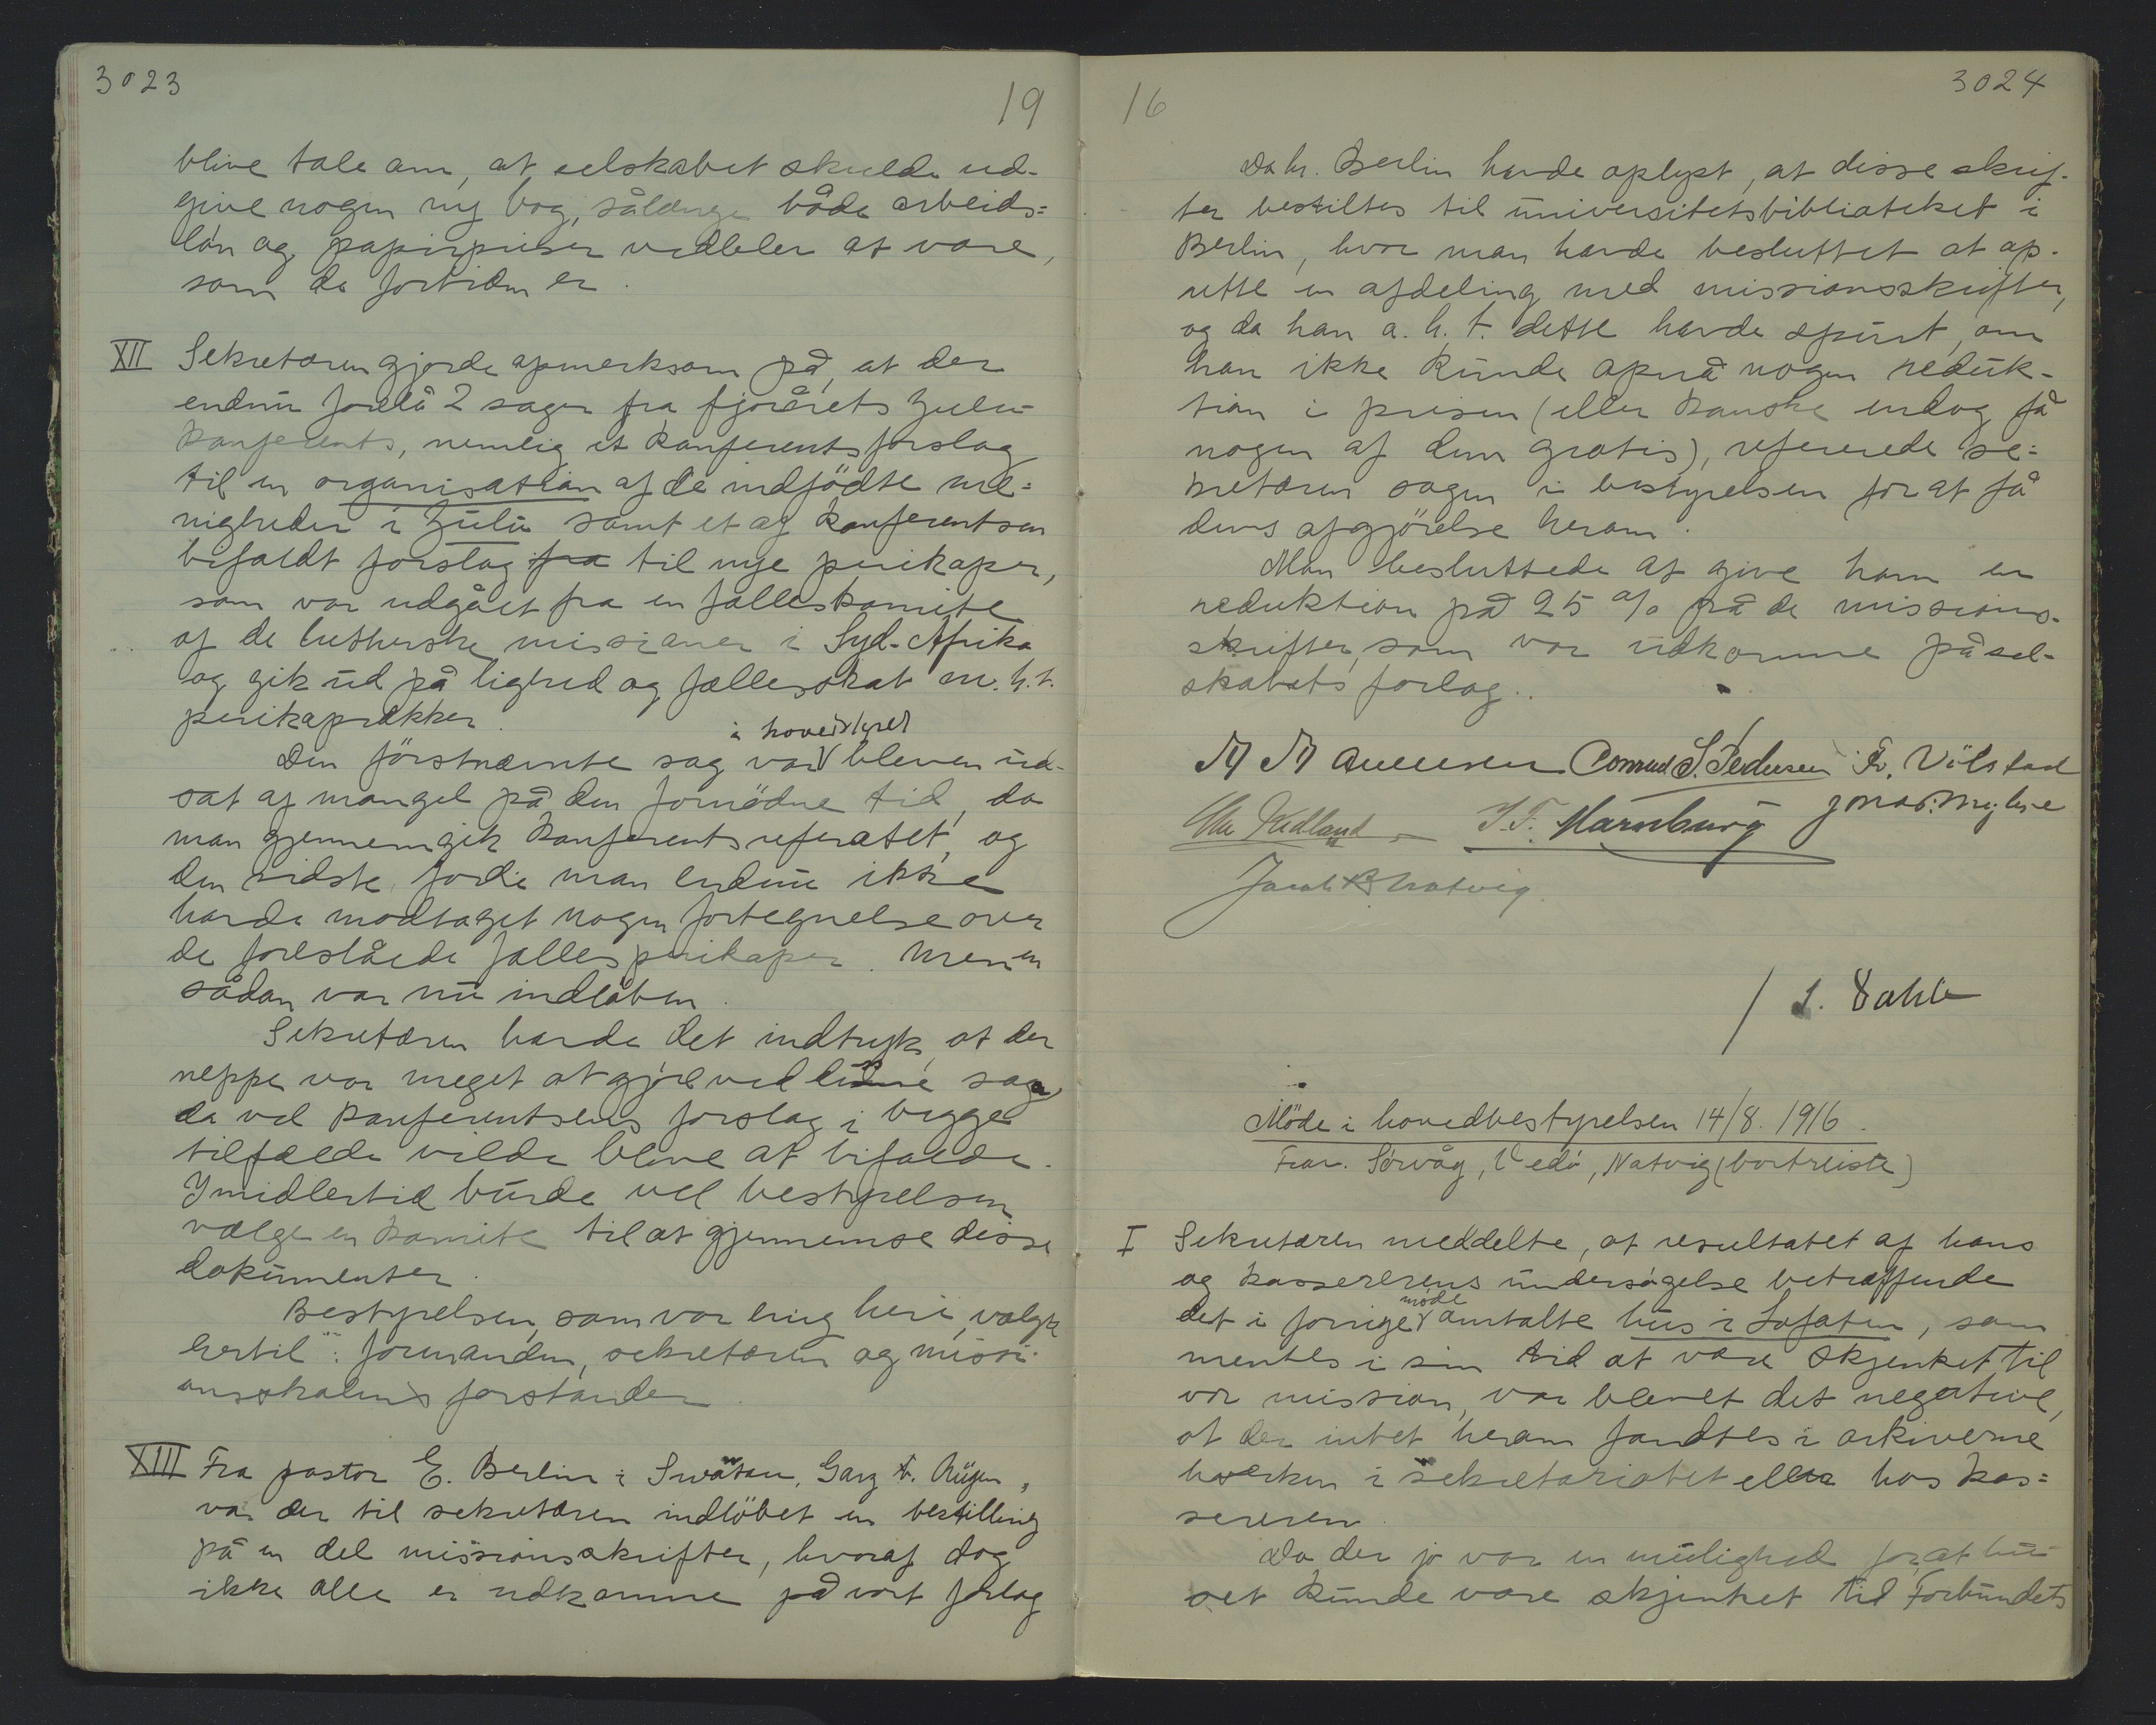 3023
19
blive tale om, at selskabet skulde ud-
give nogen ny bog, sålænge både arbeids=
løn og papirpriser vedbler at være,
som de fortiden er.
XII Sekretæren gjorde opmerksom på, at der
endnu forelå 2 sager fra fjorårets Zulu-
konferents, nemlig et konferentsforslag
til en organisation af de indfödte me=
nigheder i Zulu samt et af konferentsen
bifaldt forslag fra til nye perikoper,
som var udgået fra en felleskomite
af de lutherske missioner i Syd-Afrika
og gik ud på lighed og fællesskab m.h.t.
perikoprækker.
i hovedstyret
Den förstnævnte sag var bleven ud-
sat af mangel på den fornödne tid, da
man gjennemgik konferentsreferatet, og
den sidste, fordi man endnu ikke
havde modtaget nogen fortegnelse over
de foreslåede fællesperikoper. Men en
sådan var nu indlöben.
Sekretæren havde det indtryk, at der
neppe var meget at gjöre ved sager
da vel konferentsens forslag i begge
tilfælde vilde blive at bifalde.
Imidlertid burde vel bestyrelsen
vælge en komite til at gjennemse disse
dokumenter.
Bestyrelsen, som var enig heri, valgte
hertil: formanden, sekretæren og missi-
onsskolens forstander.
XIII Fra pastor E. Berlin i Swantau, Garz a. Rügen,
var der til sekretæren indlöbet en bestilling
på en del missionsskrifter, hvoraf dog
ikke alle er udkomne på vort forlag
16
3024
Da hr. Berlin havde oplyst, at disse skrif-
ter bestiltes til universitetsbiblioteket i
Berlin, hvor man havde besluttet at op-
rette en afdeling med missionsskrifter,
og da han a. h. t. dette havde spurt, om
han ikke kunde opnå nogen reduk-
tion i prisen (eller kanske endog få
nogen af dem gratis), refererede se=
kretæren sagen i bestyrelsen for at få
dens afgjörelse herom.
Man besluttede at give ham en
reduktion på 25 % på de missions-
skrifter, som var udkomne på sel-
skabets forlag.
Conrad S. Pedersen Fr. Völstad
Kudland
Jacob Natvig
/ L. Dahle
Möde i hovedbestyrelsen 14/8. 1916.
Frav. Sörvåg, Vedö, Natvig (bortreiste)
I Sekretæren meddelte, at resultatet af hans
og kassererens undersögelse betræffende
möde
det i forrige omtalte hus i Lofoten, som
mentes i sin tid at være skjenket til
vor mission, var blevet det negative,
at der intet herom fandtes i arkiverne
hverken i sekretariatet eller hos kas=
sereren.
Da der jo var en mulighed for, at hu-
set kunde være skjenket til Forbundets